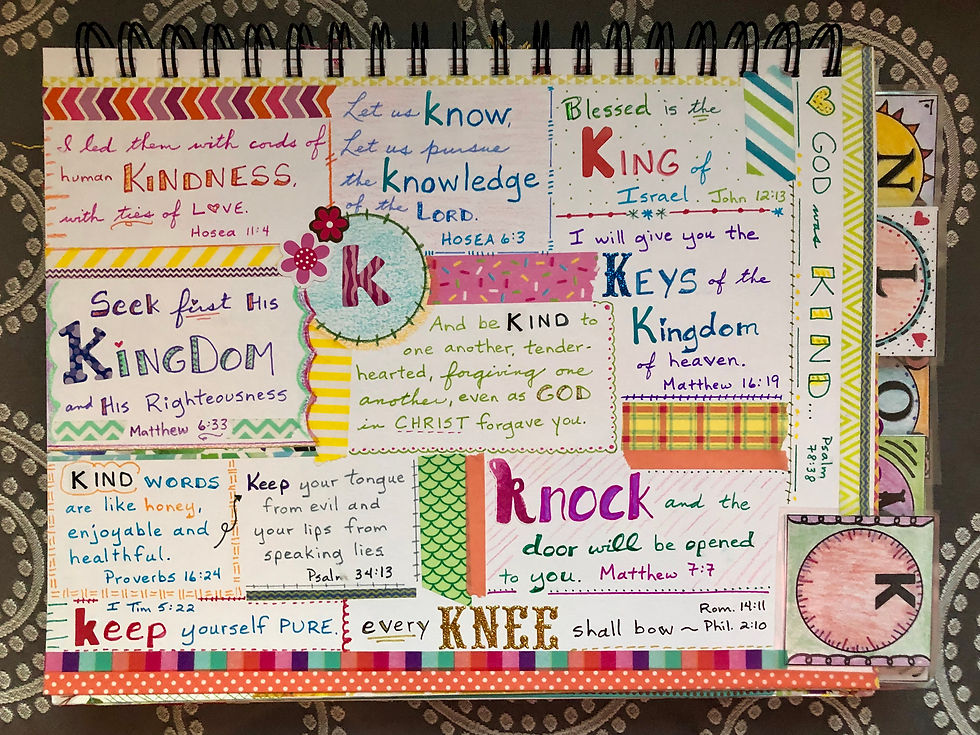 I led them with cords of
human KINDNESS,
with ties of LOVE.
Hosea 11:4
Let us know,
Let us pursue
the knowledge
of the LORD.
HOSEA 6:3
Blessed is the
KING of
Israel. John 12:13
Seek first His
KINGDOM
and His Righteousness
Matthew 6:33
k
And be KIND to
one another, tender-
hearted, forgiving one
another, even as GOD
in CHRIST forgave you.
I will give you the
KEYS of the
Kingdom
of heaven.
Matthew 16:19
KIND WORDS
are like honey,
enjoyable and
healthful.
Proverbs 16:24
Keep your tongue
from evil and
your lips from
speaking lies
Psalm 34:13
knock and the
door will be opened
to you. Matthew 7:7
I Tim 5:22
keep yourself PURE.
every KNEE shall bow ~
Rom. 14:11
Phil. 2:10
GOD was KIND...
Psalm 78:38
N
L
O
M
K